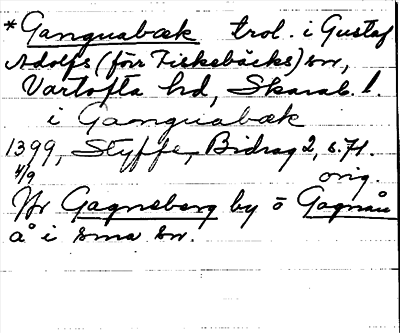 *Ganguabæk trol. i Gustaf
Adolfs (förr Fiskebäcks) sn,
Vartofta hd, Skarab. l.
i Ganguabæk
1399, Styffe, Bidrag 2, s. 71.
4/9 orig.
Jfr Gagneberg by o Gagnån
å i sma sn.